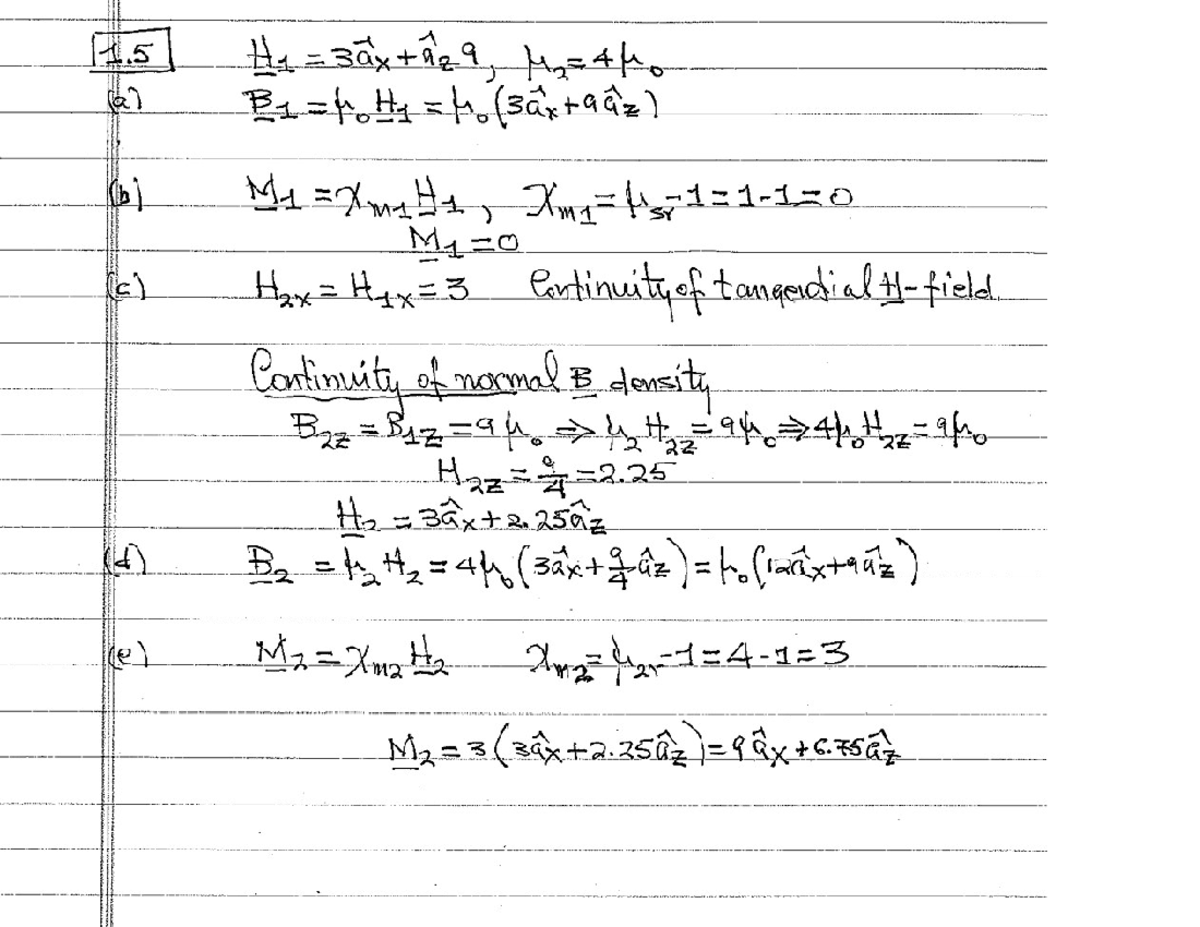 1.5 H₁ = 3âx + âz 9, μ₂ = 4μ₀
(a) B₁ = μ₀ H₁ = μ₀ (3âx + 9âz)
(b) M₁ = χm₁ H₁, χm₁ = μsr - 1 = 1 - 1 = 0
M₁ = 0
(c) H₂x = H₁x = 3 Continuity of tangential H-field.
Continuity of normal B density
B₂z = B₁z = 9μ₀ ⇒ μ₂ H₂z = 9μ₀ ⇒ 4μ₀ H₂z = 9μ₀
H₂z = 9/4 = 2.25
H₂ = 3âx + 2.25âz
(d) B₂ = μ₂ H₂ = 4μ₀ (3âx + 9/4 âz) = μ₀ (12âx + 9âz)
(e) M₂ = χm₂ H₂ χm₂ = μ₂r - 1 = 4 - 1 = 3
M₂ = 3 (3âx + 2.25âz) = 9âx + 6.75âz